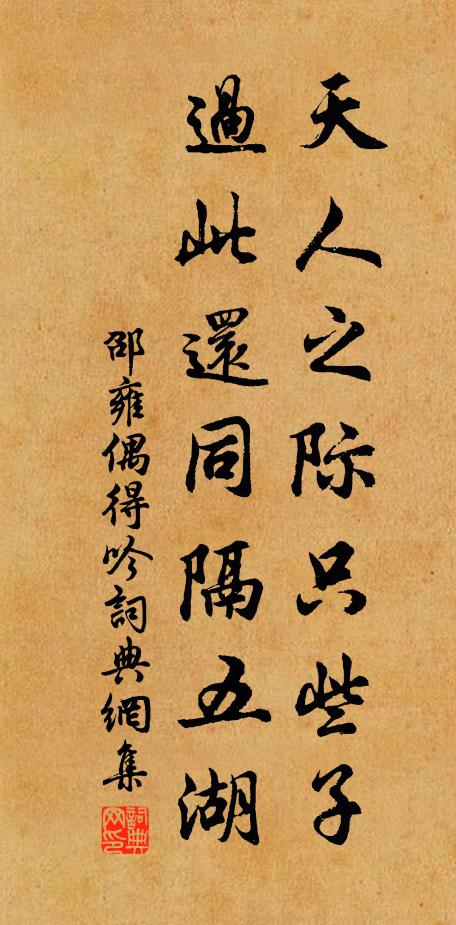 天人之际只些子
過此還同隔五湖
邵雍偶得吟詞典網集
詞典网印